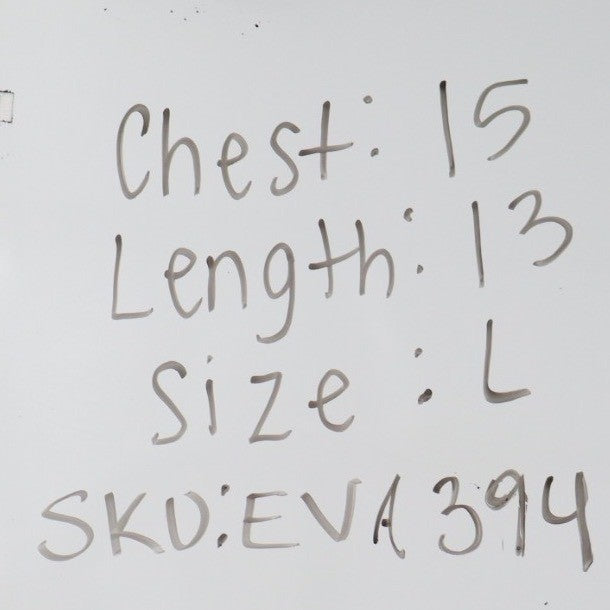 Chest: 15
Length: 13
Size: L
SKU: EVA 394